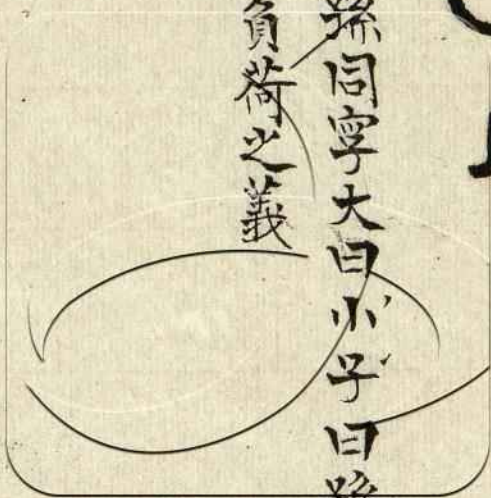 孫同寧大曰小子曰
負荷之義